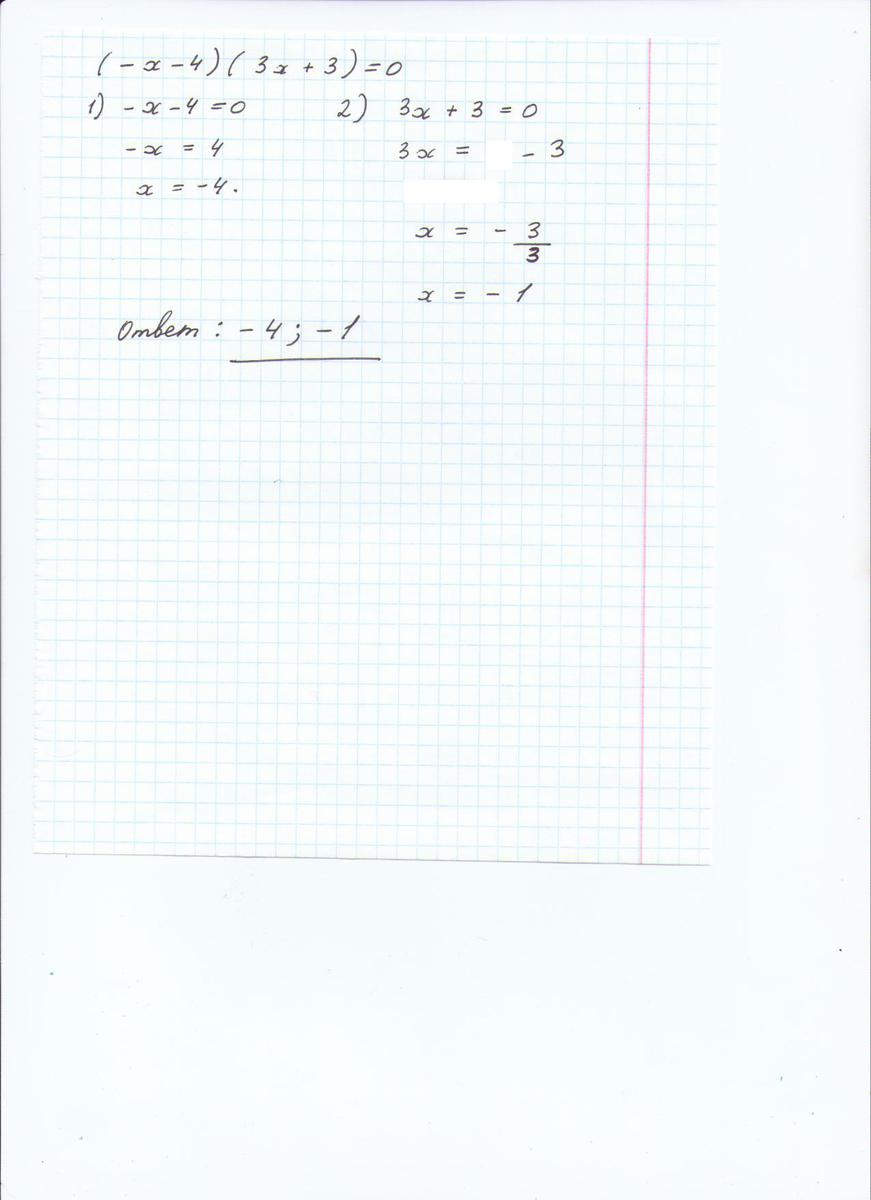 (-x-4)(3x+3)=0
1) -x-4=0
-x = 4
x = -4.
2) 3x + 3 = 0
3x = - 3
x = - 3/3
x = - 1
Ответ : -4 ; -1